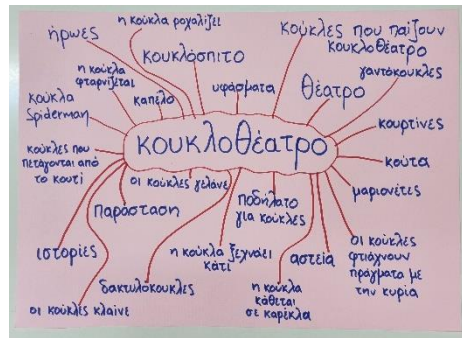 η κούκλα ροχαλίζει
ήρωες
κουκλόσπιτο
κούκλες που παίζουν
κουκλοθέατρο
η κούκλα
φταρνίζεται
καπέλο
υφάσματα
θέατρο
γαντόκουκλες
κούκλα
Spiderman
κουρτίνες
κουκλοθέατρο
κούκλες που
πετάγονται από
το κουτί
κούτα
οι κούκλες γελάνε
μαριονέτες
παράσταση
ποδήλατο
για κούκλες
ιστορίες
η κούκλα ξεχνάει
κάτι
αστεία
οι κούκλες
φτιάχνουν
πράγματα με
την κυρία
δακτυλόκουκλες
η κούκλα
κάθεται
σε καρέκλα
οι κούκλες κλαίνε